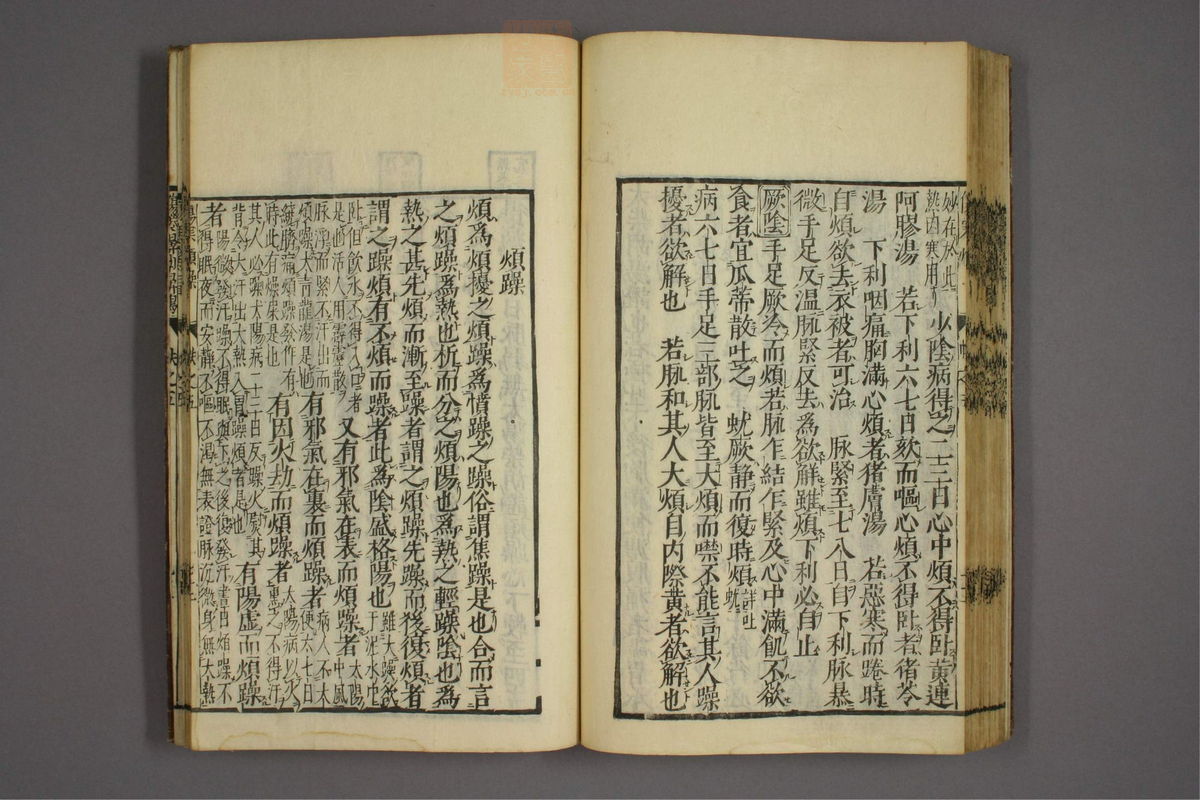 妙在於此
熱因寒用
少陰病得之二三日心中煩不得臥黃連
阿膠湯　若下利六七日欬而嘔心煩不得臥者猪苓
湯　下利咽痛胸滿心煩者猪膚湯　若惡寒而踡時
自煩欲去衣被者可治　脉緊至七八日自下利脉暴
微手足反温脉緊反去爲欲解雖煩下利必自止
厥陰手足厥冷而煩若脉乍結乍緊及心中滿飢不欲
食者宜瓜蒂散吐之　蚘厥静而復時煩詳吐蚘
病六七日手足三部脉皆至大煩而噤不能言其人躁
擾者欲解也　若脉和其人大煩自内際黃者欲解也
煩躁
煩爲煩擾之煩躁爲憤躁之躁俗謂焦躁是也合而言
之煩躁爲熱也析而分之煩陽也爲熱之輕躁陰也爲
熱之甚先煩而漸至躁者謂之煩躁先躁而後復煩者
謂之躁煩有不煩而躁者此爲陰盛格陽也
雖大躁欲
于泥水中
臥但飲水不得入口者
是也活人用霹靂散
又有邪氣在表而煩躁者
太陽
中風
脉浮而緊不汗出而
煩躁大青龍湯是也
有邪氣在裏而煩躁者
病人不大
便六七日
繞臍痛煩躁發作有
時此有燥屎是也
有因火劫而煩躁者
太陽病以火
熏之不得汗
其人必躁太陽病二十二日反躁火熨其
背令大汗出大熱入胃躁煩者是也
有陽虛而煩躁
者
陽微發汗躁不得眠與下之後復發汗晝日煩躁不
得眠夜而安靜不嘔不渴無表證脉沉微身無大熱